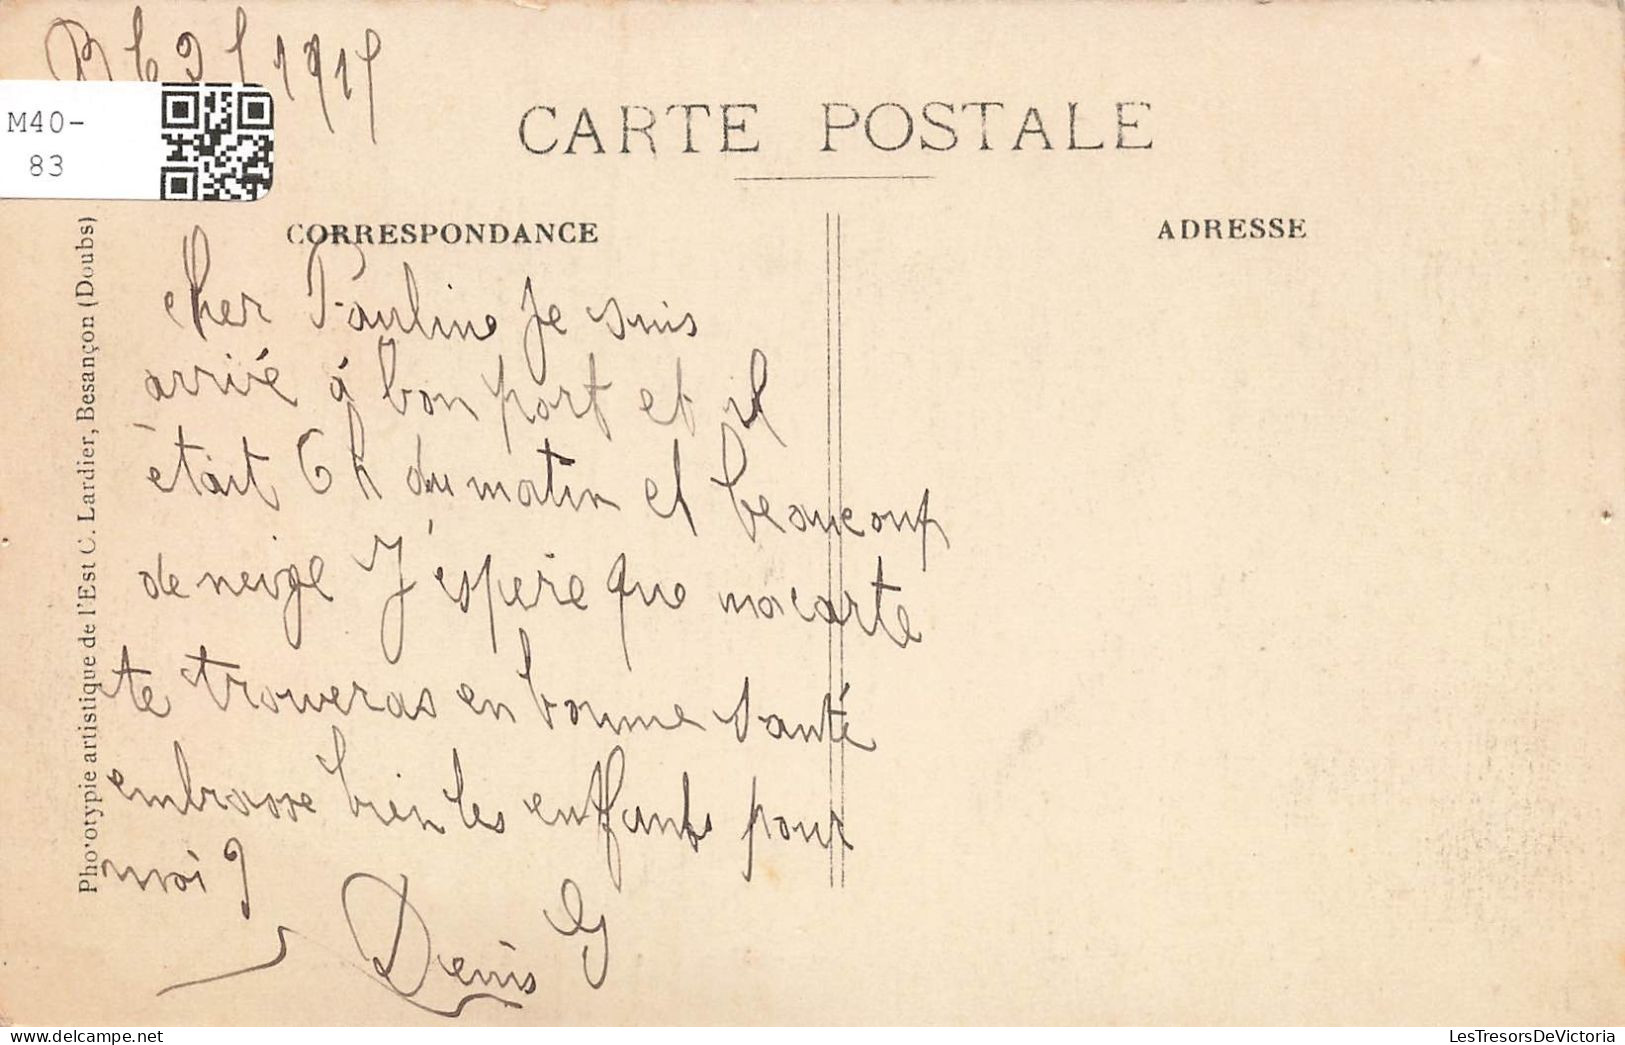 1915
M40-
83
CARTE POSTALE
CORRESPONDANCE
ADRESSE
Pho'otypie artistique de l'Est C. Lardier, Besançon (Doubs)
cher Pauline Je suis
arrivé à bon port et il
était 6 h du matin et beaucoup
de neige J'espère que ma carte
te trouveras en bonne santé
embrasse bien les enfants pour
moi
Denis G
LesTresorsDeVictoria.com